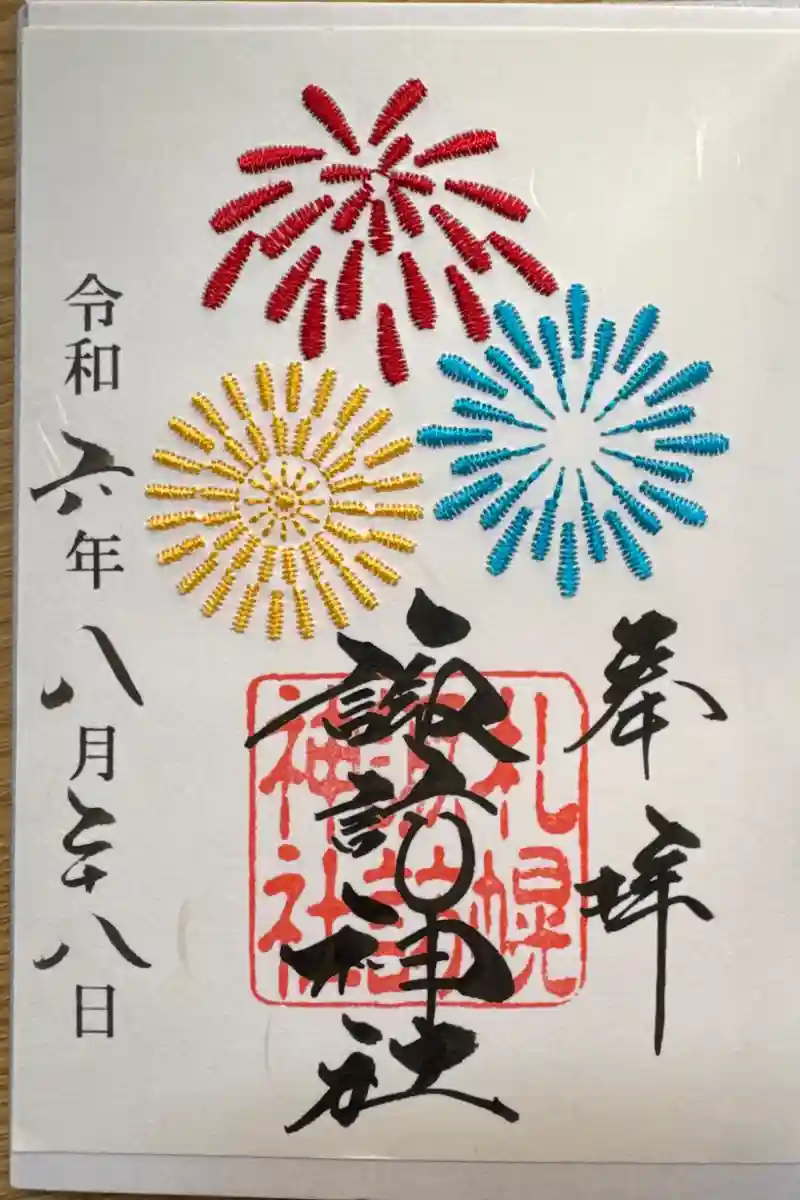 奉拝
札幌
諏訪
神社
諏訪神社
令和六年八月二十八日